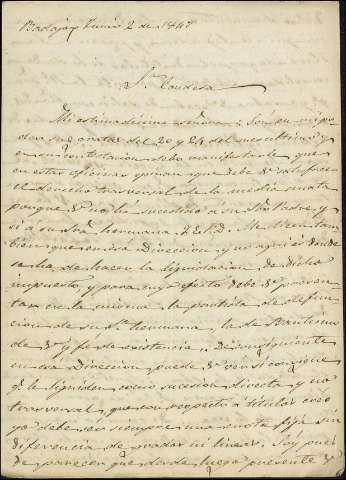 Badajoz Junio 2 de 1847
Sra. Condesa
Mi estimadísima señora: Son en mi po-
der sus gratas del 20 y 24 del mes último y
en contestación debo manifestarle que
en estas oficinas opinan que debe V. satisfacer
el derecho trasversal de la media anata
porque V. no há sucedido a su Sor. Padre, y
si a su Sra. hermana. Me dicen tam-
bien que en esa Direccion, y no aqui es donde
se ha de hacer la liquidacion de dicho
impuesto, y para cuyo efecto debe V. presen-
tar en la misma la partida de defun-
cion de su Sra. hermana, la de Bautismo
de V. y fe de existencia. De consiguiente
en esa Direccion, puede V. ver si consigue
q. le liquiden como sucesion directa y no
trasversal, que con respecto á titulos creo
yo debe ser siempre una cuota fija sin
diferencia de grados ni lineas. Soy pues
de parecer que desde luego presente V.